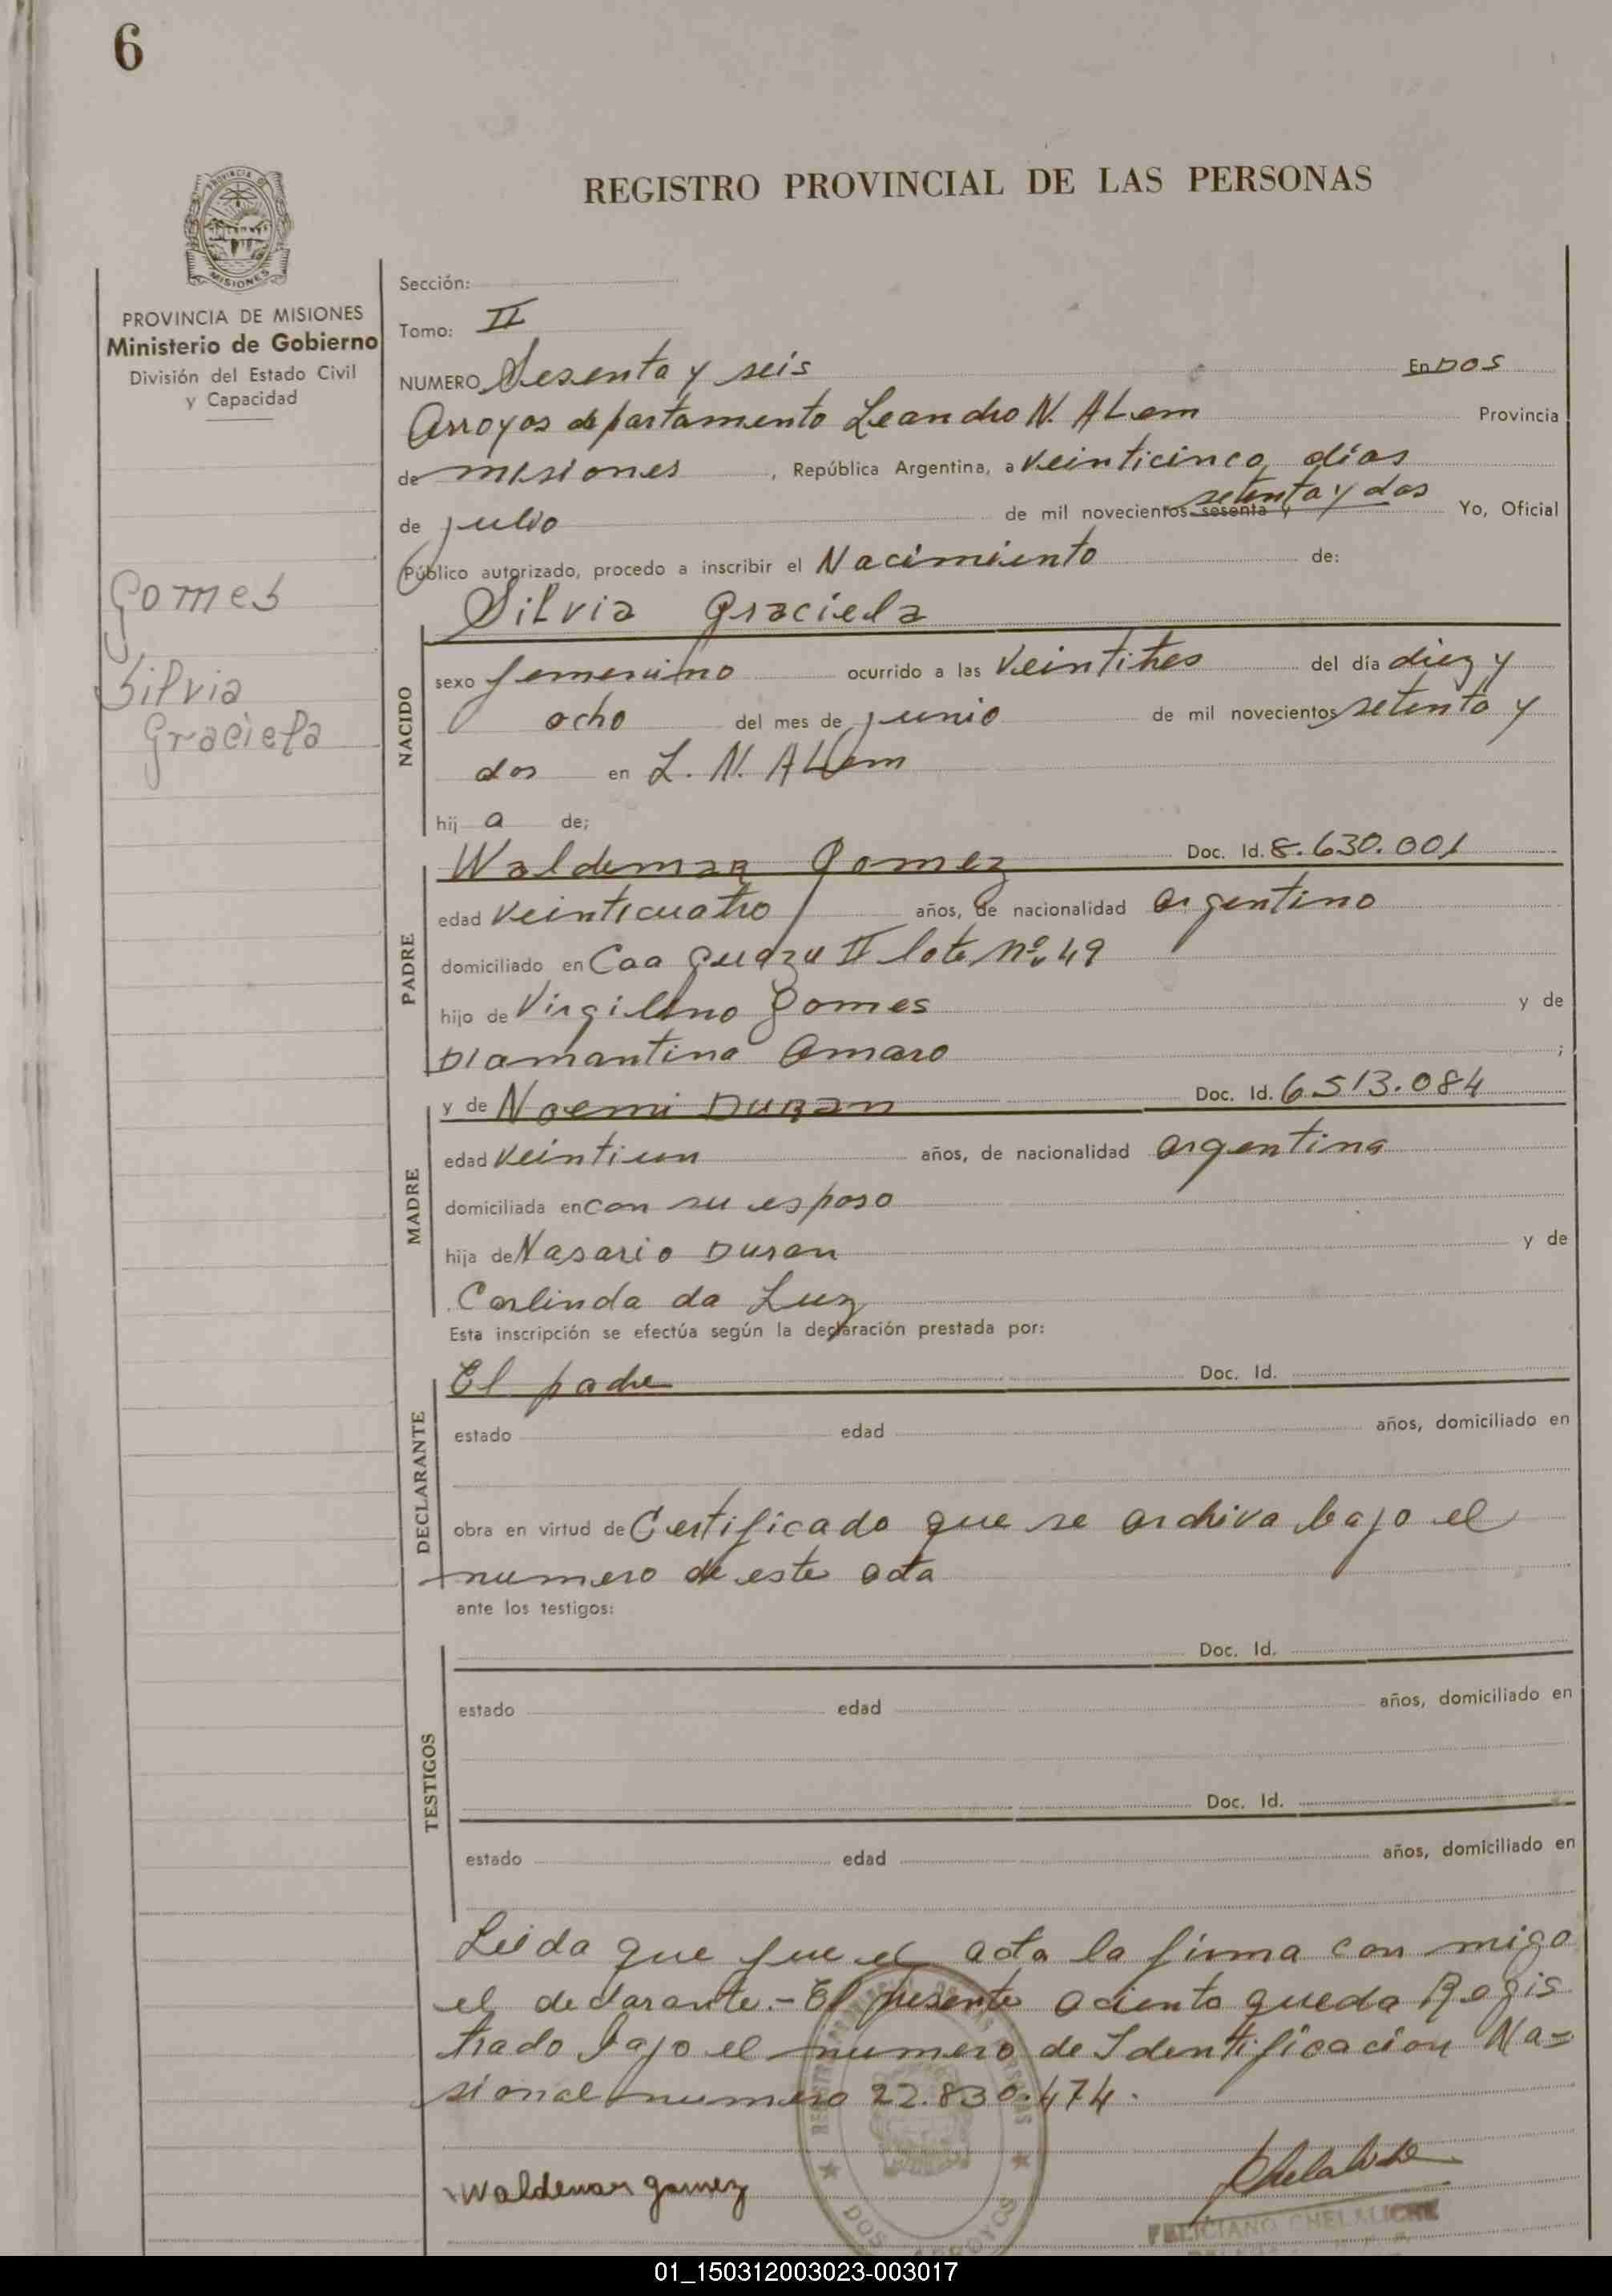 6
PROVINCIA DE MISIONES
REGISTRO PROVINCIAL DE LAS PERSONAS
PROVINCIA DE MISIONES
Ministerio de Gobierno
División del Estado Civil
y Capacidad
Gomes
Silvia
Graciela
Sección:
Tomo: II
NUMERO Sesenta y seis En DOS
Arroyos departamento Leandro N. ALem Provincia
de misiones, República Argentina, a veinticinco días
de julio de mil novecientos sesenta y setenta y dos Yo, Oficial
Público autorizado, procedo a inscribir el Nacimiento de:
Silvia Graciela
NACIDO
sexo femenino ocurrido a las veintitres del día diez y
ocho del mes de junio de mil novecientos setenta y
dos en L. N. ALem
hij a de;
PADRE
Waldemar Gomez Doc. Id. 8.630.001
edad veinticuatro años, de nacionalidad argentino
domiciliado en Caa Guazu II lote Nº 49
hijo de Virgilino Gomes y de
Diamantina Amaro ;
MADRE
y de Noemi DURAN Doc. Id. 6.513.084
edad veintiun años, de nacionalidad argentina
domiciliada en con su esposo
hija de Nasario Duran y de
Carlinda da Luz
Esta inscripción se efectúa según la declaración prestada por:
DECLARANTE
El padre Doc. Id.
estado edad años, domiciliado en
obra en virtud de Certificado que se archiva bajo el
numero de este acta
ante los testigos:
TESTIGOS
Doc. Id.
estado edad años, domiciliado en
Doc. Id.
estado edad años, domiciliado en
Leida que fue el acta la firma con migo
el declarante.- El presente aciento queda Regis
trado bajo el numero de Identificacion Na=
sional numero 22.830.474.
Waldemar gomez
REGISTRO PROVINCIAL DE LAS PERSONAS
DOS ARROYOS
FELICIANO CHELALICHE
01_150312003023-003017